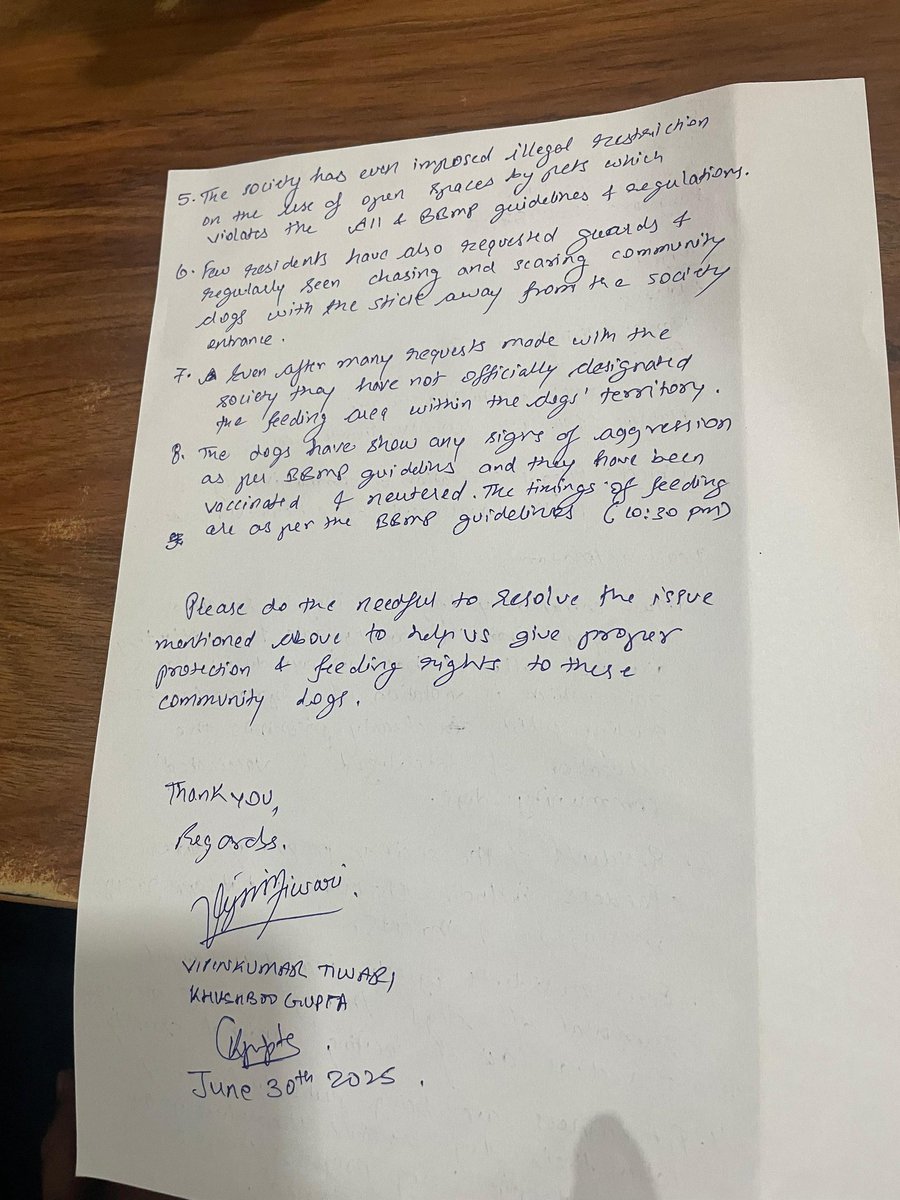 5. The society has even imposed illegal restriction
on the use of open spaces by pets which
violates the AII & BBMP guidelines & regulations.
6. Few residents have also requested guards &
regularly seen chasing and scaring community
dogs with the stick away from the society
entrance.
7. Even after many requests made with the
society they have not officially designated
the feeding area within the dogs' territory.
8. The dogs have show any signs of aggression
as per BBMP guidelins and they have been
vaccinated & neutered. The timings of feeding
are as per the BBMP guidelines (10:30 pm)
Please do the needful to resolve the issue
mentioned above to help us give proper
protection & feeding rights to these
community dogs.
Thank you,
Regards.
VIPINKUMAR TIWARI,
KHUSHBOO GUPTA
June 30th 2025.